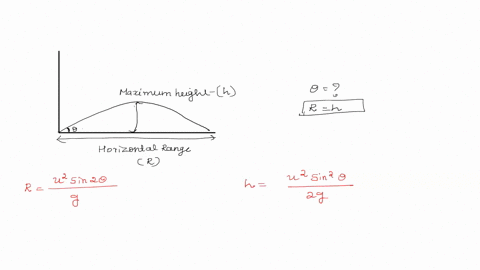 Maximum height-(h)
θ = ?
R = h
θ
Horizontal Range
(R)
R = u² sin 2θ / g
h = u² sin² θ / 2g